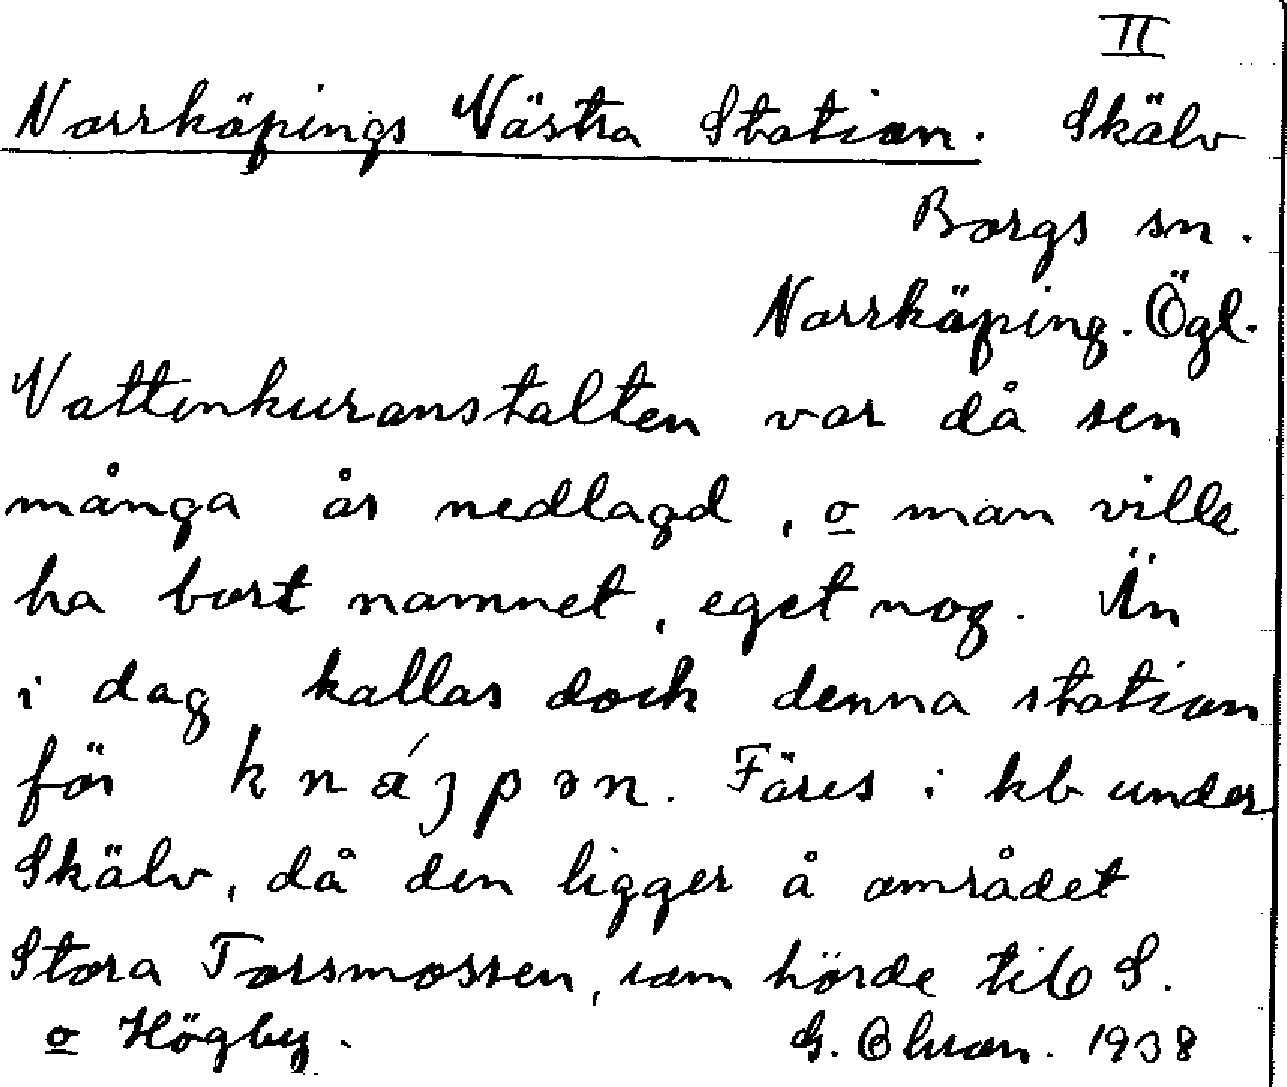 II
Norrköpings Västra Station. Skälv
Borgs sn.
Norrköping. Ögl.
Vattenkuranstalten var då sen
många år nedlagd, o man ville
ha bort namnet, eget nog. Än
i dag kallas dock denna station
för knájpən. Föres i kb under
Skälv, då den ligger å området
Stora Torsmossen, som hörde till S.
o Högby. G. Olsson. 1938